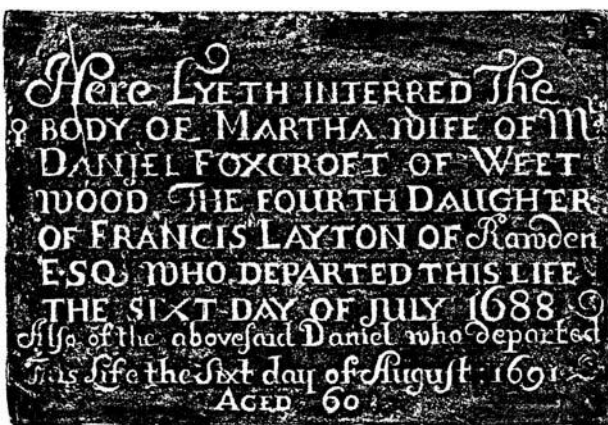 Here LYETH INTERRED The
BODY OF MARTHA WIFE OF Mr
DANIEL FOXCROFT OF WEET
WOOD THE FOURTH DAUGHTER
OF FRANCIS LAYTON OF Rawden
E·SQ WHO DEPARTED THIS LIFE
THE SIXT DAY OF JULY 1688
Alſo of the aboveſaid Daniel who departed
This Life the Sixt day of Auguſt : 1691
AGED 60